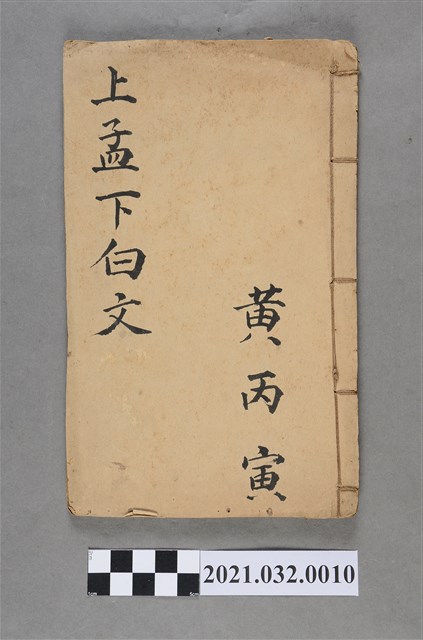 上孟下白文
黄丙寅
2021.032.0010